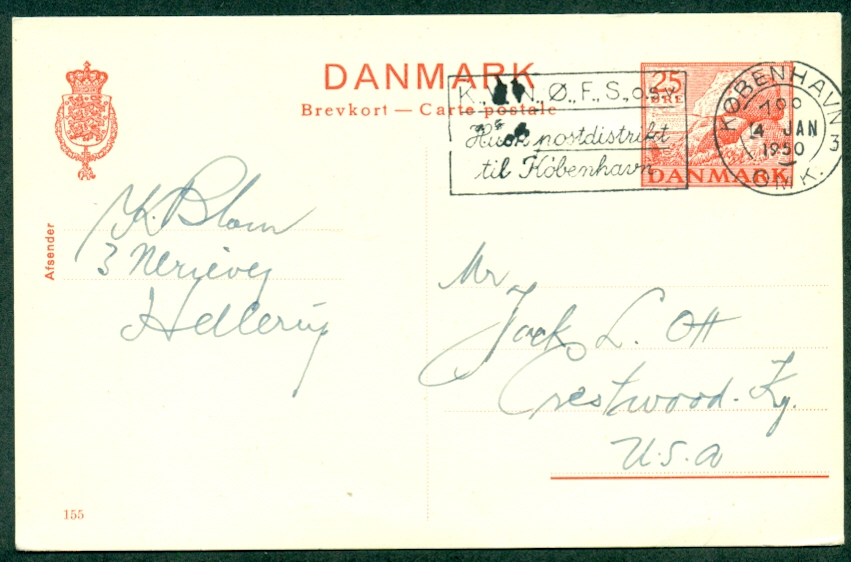 DANMARK
Brevkort — Carte postale
25
ØRE
DANMARK
K., V., N., Ø., F., S., o.s.v.
Husk postdistrikt
til København
KØBENHAVN
14 JAN
1950
3
OMK.
Afsender
K. Blom
3 Nerievej
Hellerup
Mr
Jack L. Ott
Crestwood. Ky.
U.S.A
155